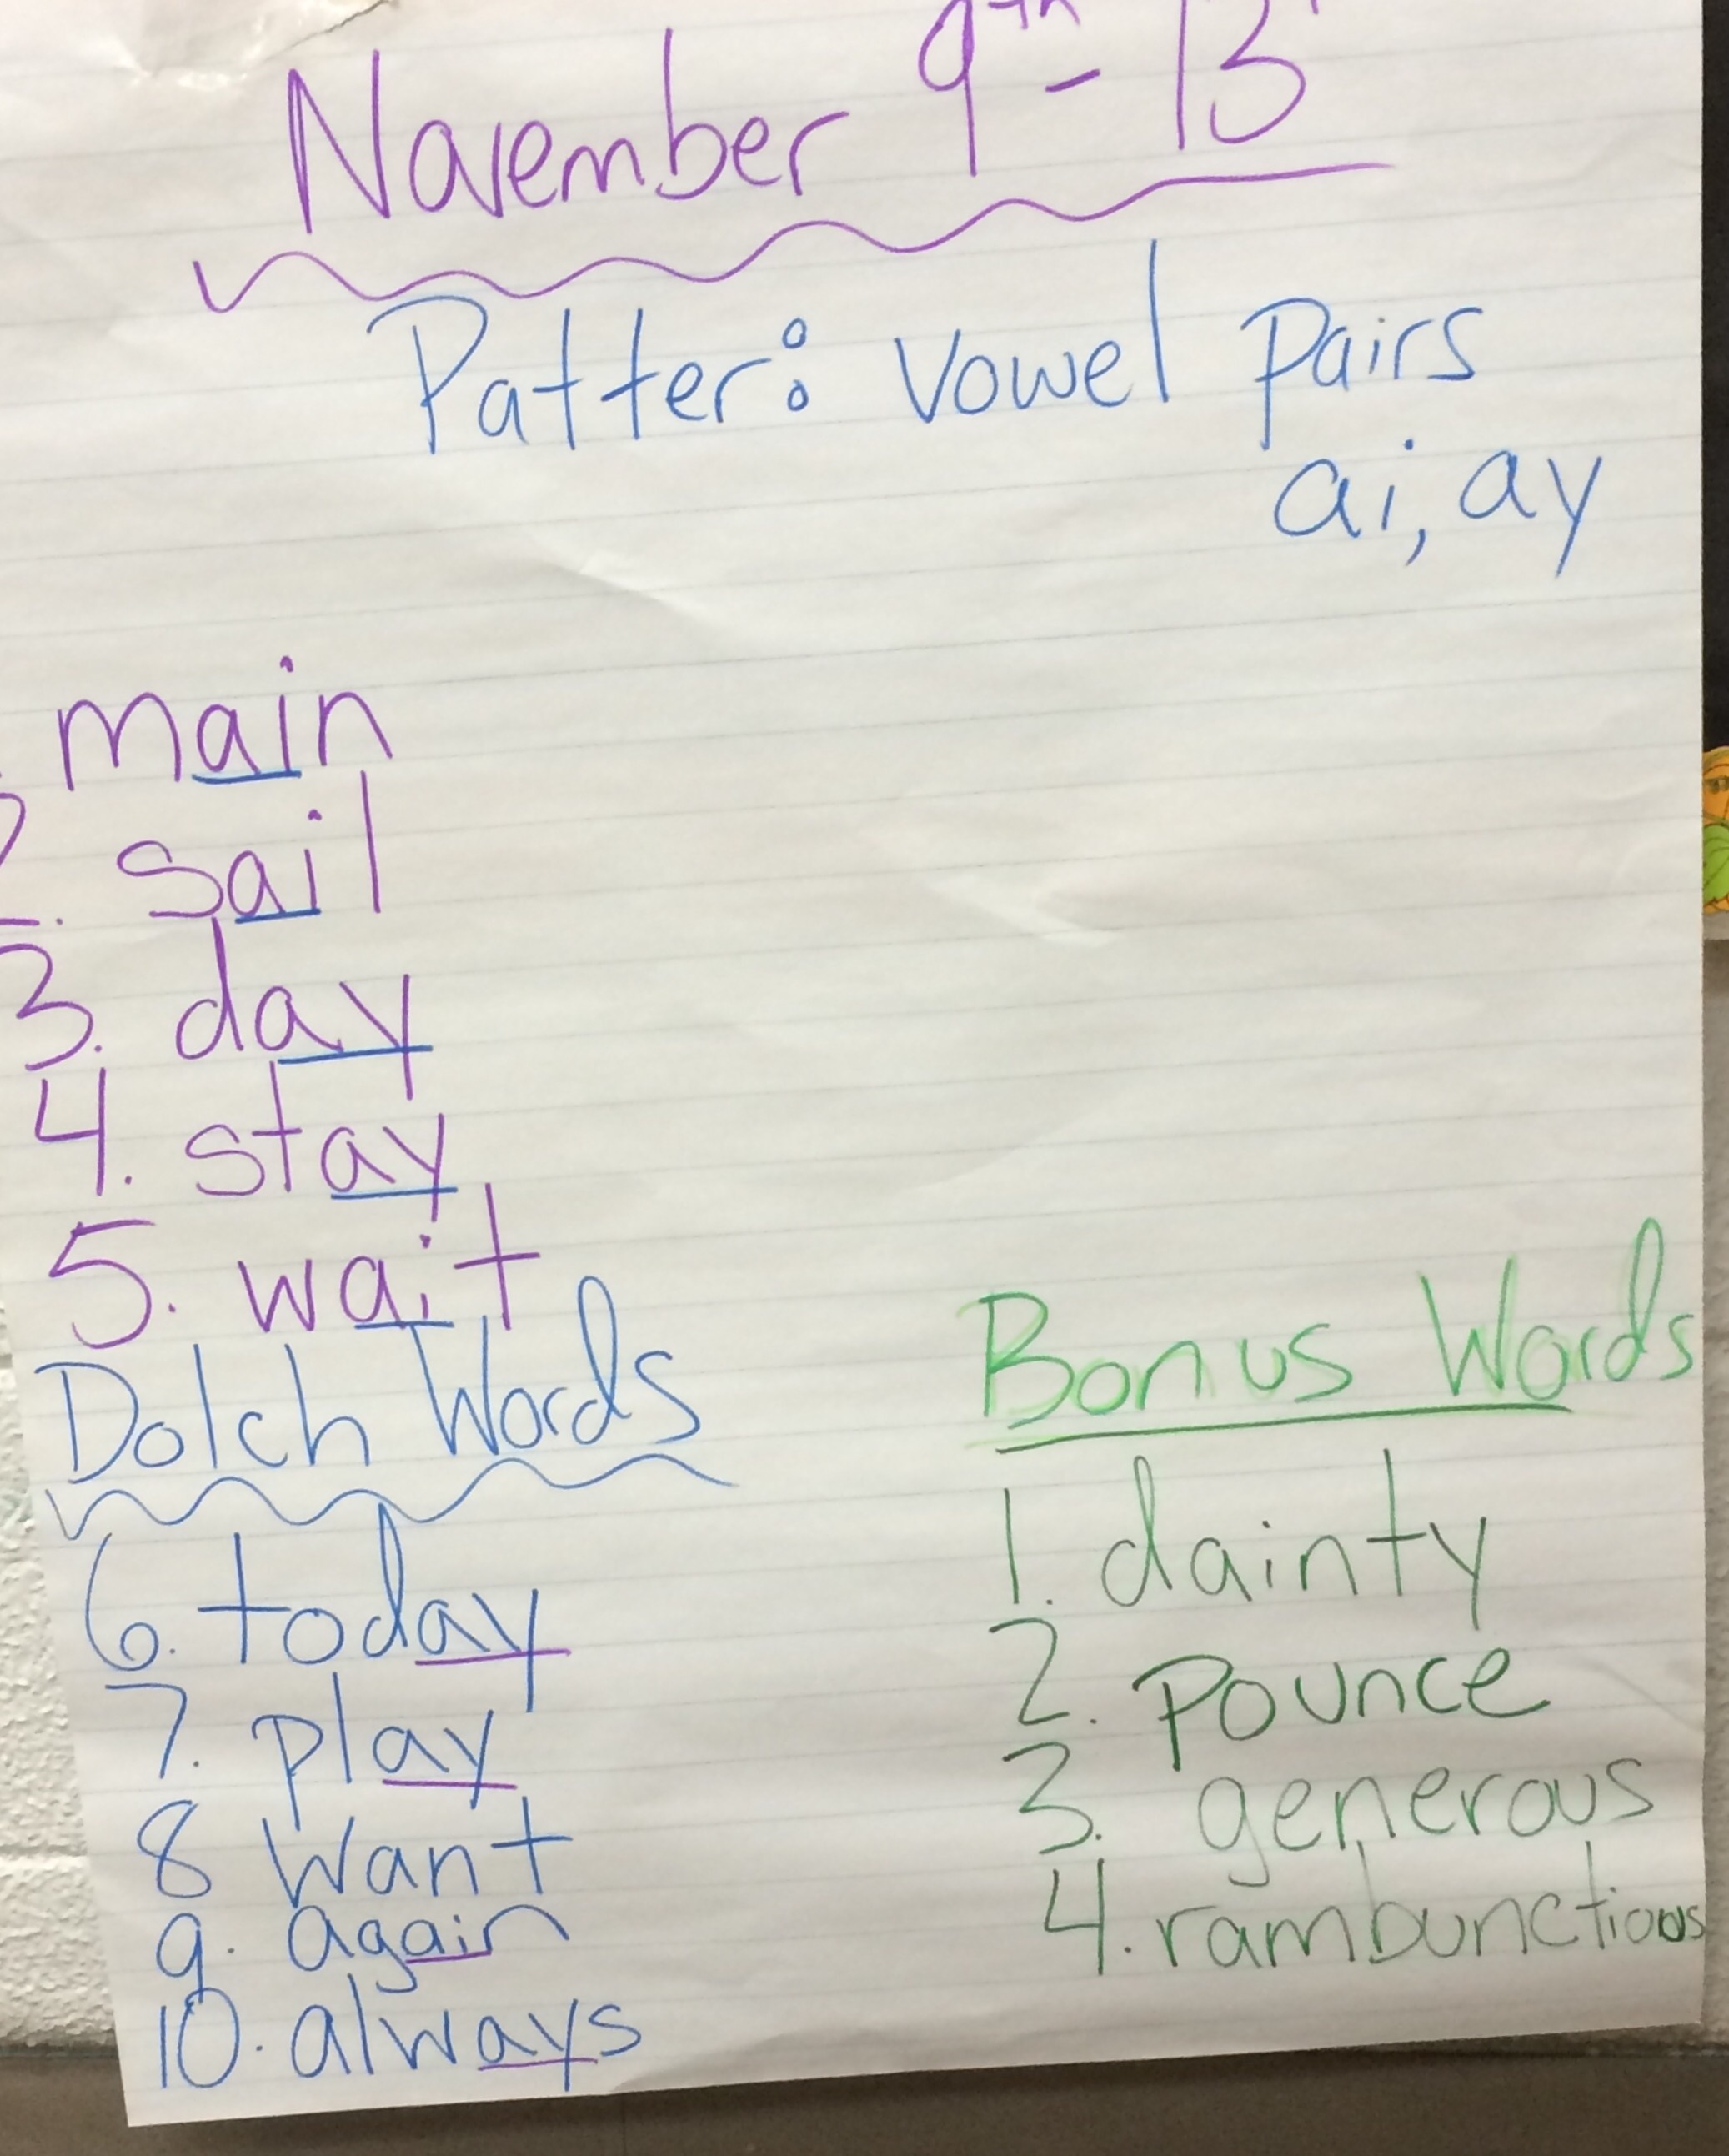 November 9th - 13
Patter: vowel pairs
ai, ay
. main
2. sail
3. day
4. stay
5. wait
Dolch Words
6. today
7. play
8 want
9. again
10. always
Bonus Words
1. dainty
2. pounce
3. generous
4. rambunctious